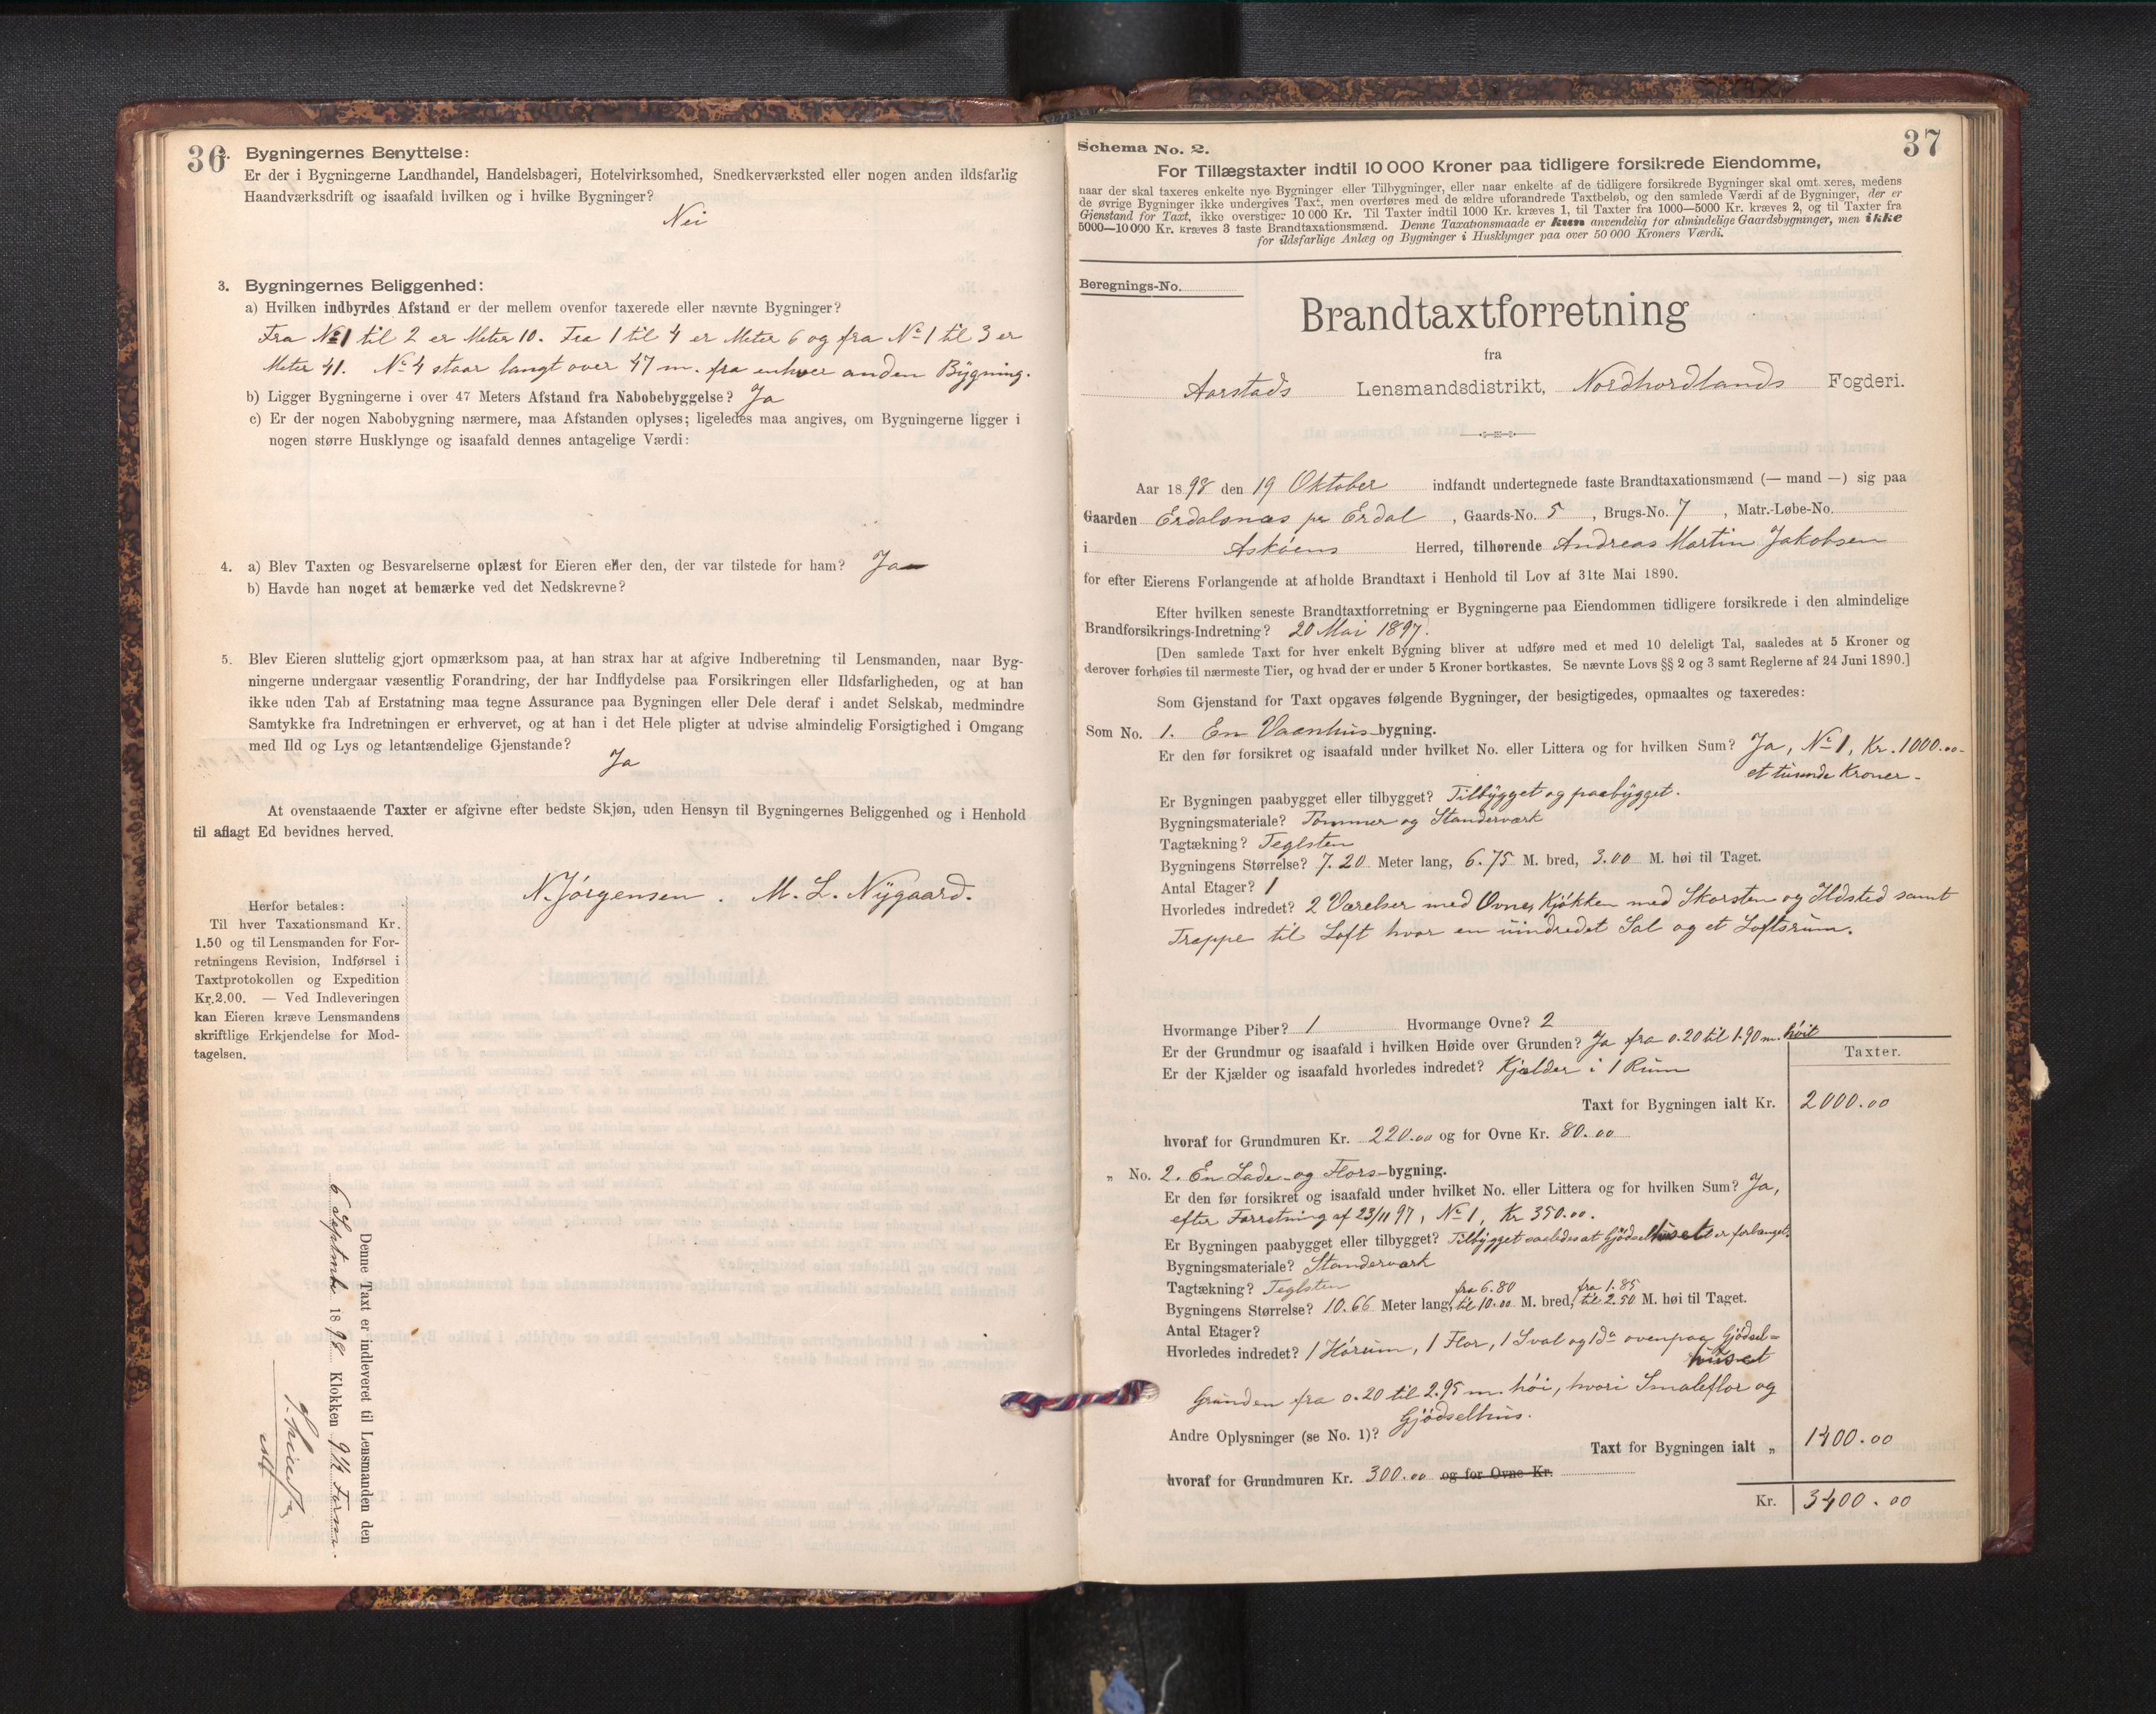 36
2. Bygningernes Benyttelse:
Er der i Bygningerne Landhandel, Handelsbageri, Hotelvirksomhed, Snedkerværksted eller nogen anden ildsfarlig
Haandværksdrift og isaafald hvilken og i hvilke Bygninger?
Nei
3. Bygningernes Beliggenhed:
a) Hvilken indbyrdes Afstand er der mellem ovenfor taxerede eller nævnte Bygninger?
Fra No 1 til 2 er Meter 10. Fra 1 til 4 er Meter 6 og fra No 1 til 3 er
Meter 41. No 4 staar langt over 47 m. fra enhver anden Bygning.
b) Ligger Bygningerne i over 47 Meters Afstand fra Nabobebyggelse? Ja
c) Er der nogen Nabobygning nærmere, maa Afstanden oplyses; ligeledes maa angives, om Bygningerne ligger i
nogen større Husklynge og isaafald dennes antagelige Værdi:
4. a) Blev Taxten og Besvarelserne oplæst for Eieren eller den, der var tilstede for ham? Ja
b) Havde han noget at bemærke ved det Nedskrevne?
5. Blev Eieren sluttelig gjort opmærksom paa, at han strax har at afgive Indberetning til Lensmanden, naar Byg-
ningerne undergaar væsentlig Forandring, der har Indflydelse paa Forsikringen eller Ildsfarligheden, og at han
ikke uden Tab af Erstatning maa tegne Assurance paa Bygningen eller Dele deraf i andet Selskab, medmindre
Samtykke fra Indretningen er erhvervet, og at han i det Hele pligter at udvise almindelig Forsigtighed i Omgang
med Ild og Lys og letantændelige Gjenstande?
Ja
At ovenstaaende Taxter er afgivne efter bedste Skjøn, uden Hensyn til Bygningernes Beliggenhed og i Henhold
til aflagt Ed bevidnes herved.
N. Jørgensen. M. L. Nygaard.
Herfor betales:
Til hver Taxationsmand Kr.
1.50 og til Lensmanden for For-
retningens Revision, Indførsel i
Taxtprotokollen og Expedition
Kr. 2.00. — Ved Indleveringen
kan Eieren kræve Lensmandens
skriftlige Erkjendelse for Mod-
tagelsen.
Denne Taxt er indleveret til Lensmanden den
6 September 1898 Klokken 9 1/2 Form.
37
Schema No. 2.
For Tillægstaxter indtil 10 000 Kroner paa tidligere forsikrede Eiendomme,
naar der skal taxeres enkelte nye Bygninger eller Tilbygninger, eller naar enkelte af de tidligere forsikrede Bygninger skal omtaxeres, medens
de øvrige Bygninger ikke undergives Taxt, men overføres med de ældre uforandrede Taxtbeløb, og den samlede Værdi af de Bygninger, der er
Gjenstand for Taxt, ikke overstiger 10 000 Kr. Til Taxter indtil 1000 Kr. kræves 1, til Taxter fra 1000—5000 Kr. kræves 2, og til Taxter fra
5000—10 000 Kr. kræves 3 faste Brandtaxationsmænd. Denne Taxationsmaade er kun anvendelig for almindelige Gaardsbygninger, men ikke
for ildsfarlige Anlæg og Bygninger i Husklynger paa over 50 000 Kroners Værdi.
Beregnings-No.
Brandtaxtforretning
fra
Aarstads Lensmandsdistrikt, Nordhordlands Fogderi.
Aar 1898 den 19 Oktober indfandt undertegnede faste Brandtaxationsmænd (— mand —) sig paa
Gaarden Erdalsnæs pr Erdal, Gaards-No. 5, Brugs-No. 7, Matr.-Løbe-No.
i Askøens Herred, tilhørende Andreas Martin Jakobsen
for efter Eierens Forlangende at afholde Brandtaxt i Henhold til Lov af 31te Mai 1890.
Efter hvilken seneste Brandtaxtforretning er Bygningerne paa Eiendommen tidligere forsikrede i den almindelige
Brandforsikrings-Indretning? 20 Mai 1897.
[Den samlede Taxt for hver enkelt Bygning bliver at udføre med et med 10 deleligt Tal, saaledes at 5 Kroner og
derover forhøies til nærmeste Tier, og hvad der er under 5 Kroner bortkastes. Se nævnte Lovs §§ 2 og 3 samt Reglerne af 24 Juni 1890.]
Som Gjenstand for Taxt opgaves følgende Bygninger, der besigtigedes, opmaaltes og taxeredes:
Som No. 1. En Vaanhus-bygning.
Er den før forsikret og isaafald under hvilket No. eller Littera og for hvilken Sum? Ja, No 1, Kr. 1000.00-
et tusinde Kroner-
Er Bygningen paabygget eller tilbygget? Tilbygget og paabygget.
Bygningsmateriale? Tømmer og Standerværk
Tagtækning? Teglsten
Bygningens Størrelse? 7.20 Meter lang, 6.75 M. bred, 3.00 M. høi til Taget.
Antal Etager? 1
Hvorledes indredet? 2 Værelser med Ovne, Kjøkken med Skorsten og Ildsted samt
Trappe til Loft hvor en uindredet Sal og et Loftsrum.
Hvormange Piber? 1 Hvormange Ovne? 2
Er der Grundmur og isaafald i hvilken Høide over Grunden? Ja fra 0.20 til 1.90 m. høit
Er der Kjælder og isaafald hvorledes indredet? Kjælder i 1 Rum
Taxter.
Taxt for Bygningen ialt Kr. 2000.00
hvoraf for Grundmuren Kr. 220.00 og for Ovne Kr. 80.00
„ No. 2. En Lade- og Flors-bygning.
Er den før forsikret og isaafald under hvilket No. eller Littera og for hvilken Sum? Ja,
efter Forretning af 23/11 97, No 1, Kr 350.00.
Er Bygningen paabygget eller tilbygget? Tilbygget saaledes at Gjødselhuset er forlænget.
Bygningsmateriale? Standerværk
Tagtækning? Teglsten
Bygningens Størrelse? 10.66 Meter lang, fra 6.80 til 10.00 M. bred, fra 1.85 til 2.50 M. høi til Taget.
Antal Etager?
Hvorledes indredet? 1 Hørum, 1 Flor, 1 Sval og 1 do ovenpaa Gjødsel=
huset
Grunden fra 0.20 til 2.95 m. høi, hvori Smaleflor og
Gjødselhus.
Andre Oplysninger (se No. 1)?
Taxt for Bygningen ialt „ 1400.00
hvoraf for Grundmuren Kr. 300.00 og for Ovne Kr.
Kr. 3400.00